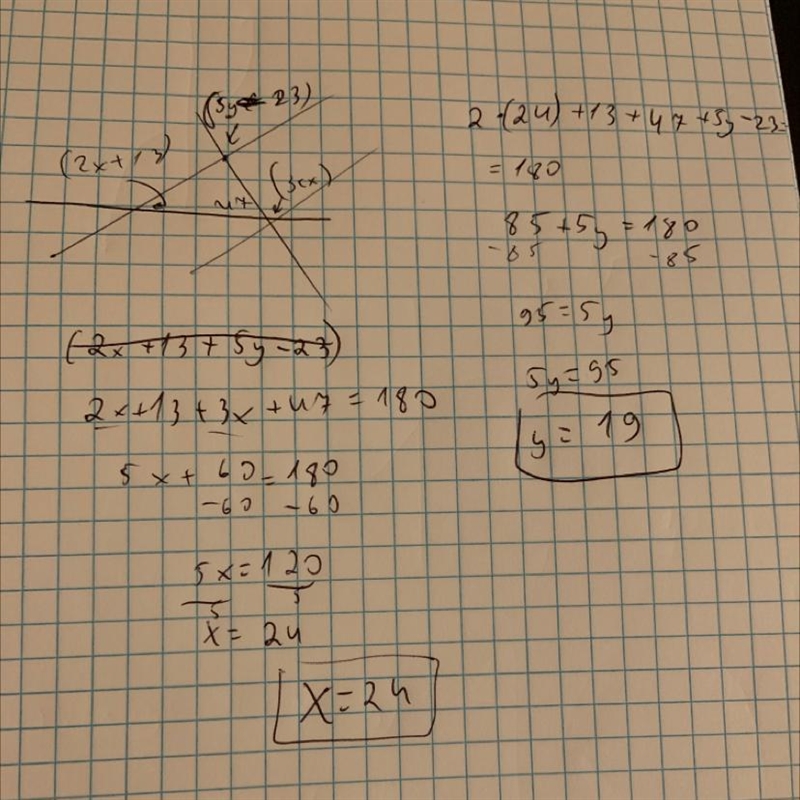 (5y - 23)
(2x+13)
47
(3x)
(2x +13 + 5y - 23)
2x+13 +3x +47 = 180
5x + 60 = 180
-60 -60
5x = 120
5 5
x = 24
x = 24
2 · (24) +13 + 47 +5y -23 =
= 180
85 +5y = 180
-85 -85
95 = 5y
5y = 95
y = 19